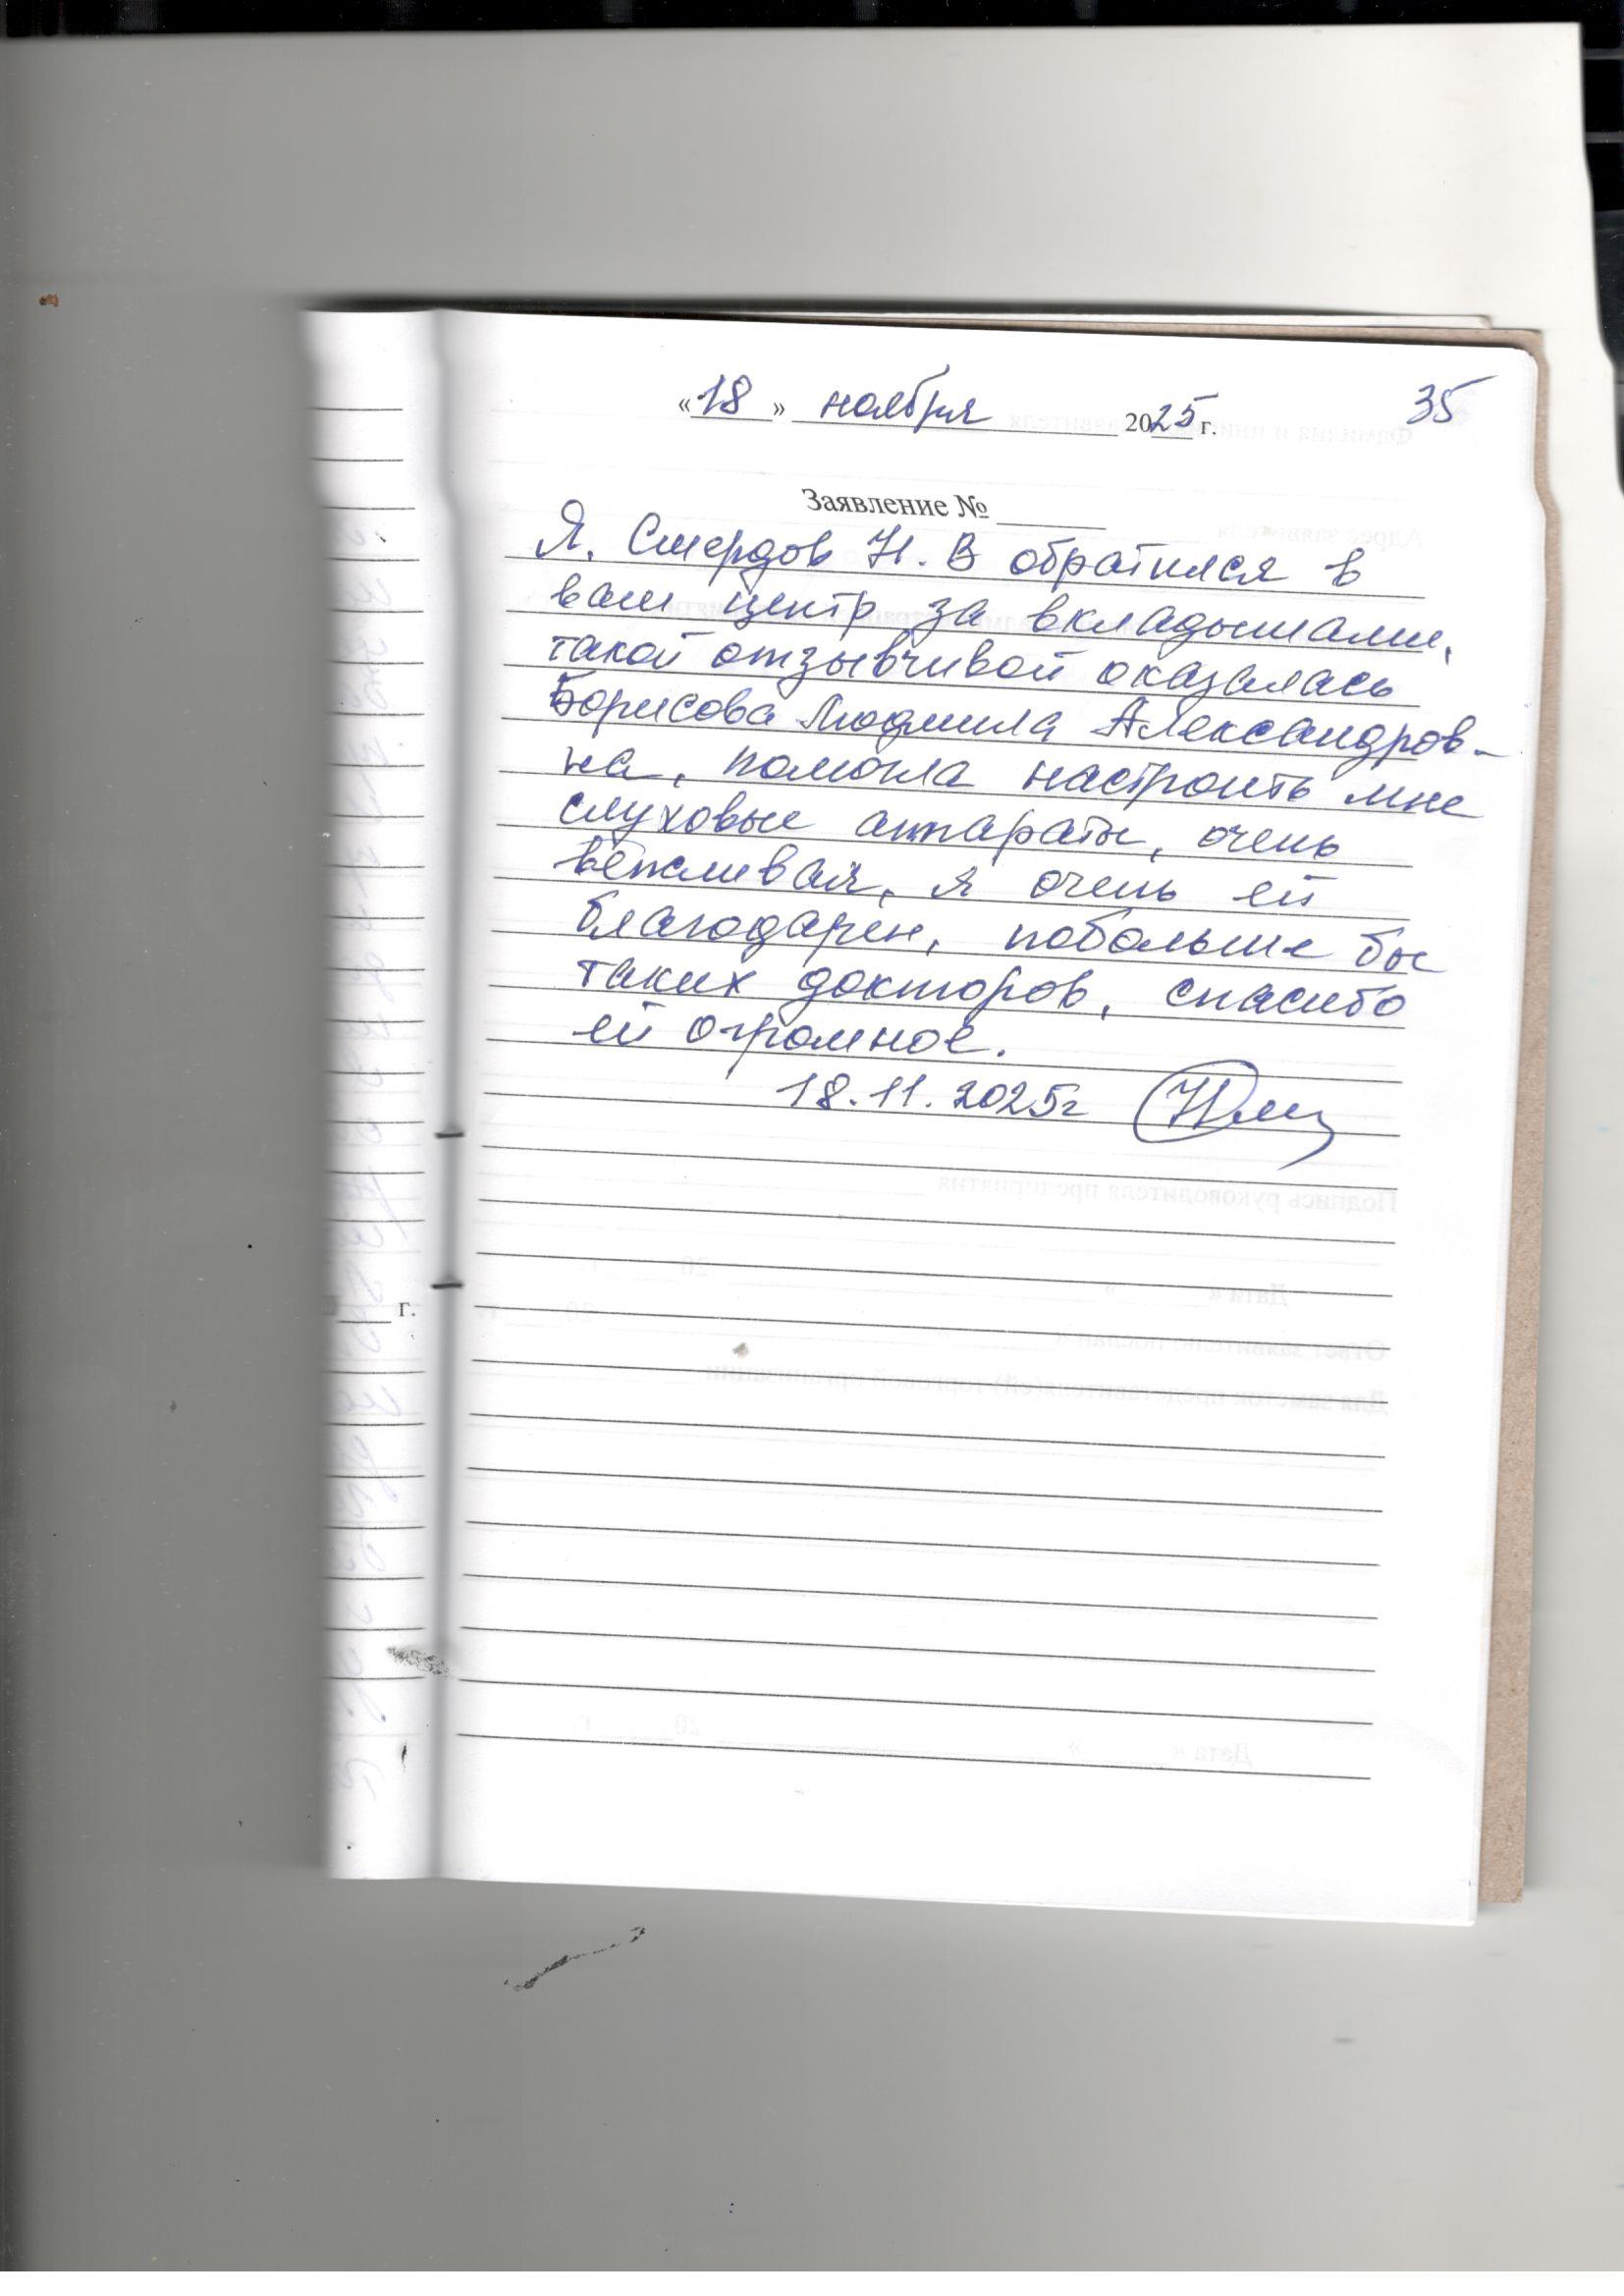 «18» ноября 2025 г. 35
Заявление № ______
Я. Смердов Н. В обратился в
ваш центр за вкладышами,
такой отзывчивой оказалась
Борисова Людмила Александров-
на, помогла настроить мне
слуховые аппараты, очень
вежливая, я очень ей
благодарен, побольше бы
таких докторов, спасибо
ей огромное.
18.11.2025г
г.